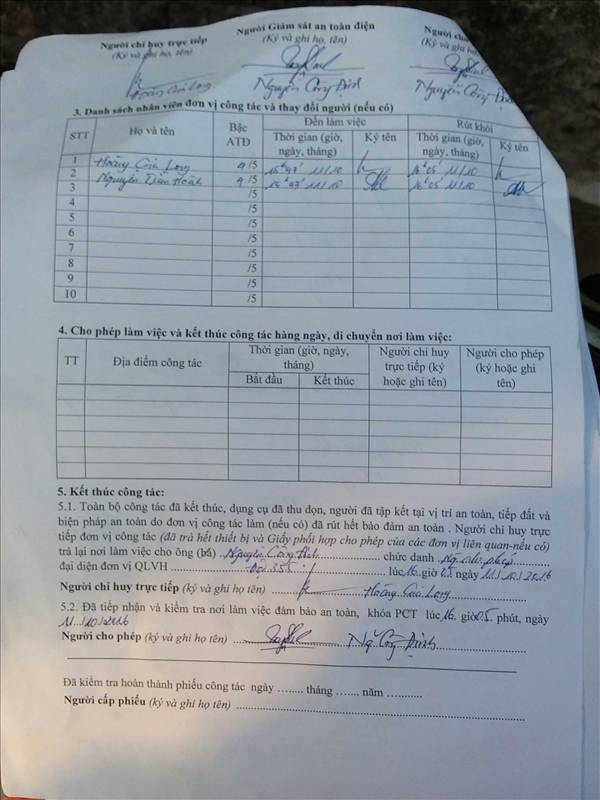 Người chỉ huy trực tiếp
(Ký và ghi họ, tên)
Người Giám sát an toàn điện
(Ký và ghi họ, tên)
Người cho
(Ký và ghi họ
Hoàng Gia Long
Nguyễn Công Định
Nguyễn Công Định
3. Danh sách nhân viên đơn vị công tác và thay đổi người (nếu có)
STT
Họ và tên
Bậc ATĐ
Đến làm việc
Rút khỏi
Thời gian (giờ, ngày, tháng)
Ký tên
Thời gian (giờ, ngày, tháng)
Ký tên
1 Hoàng Gia Long 4/5 11/10 16h05' 11/10
2 Nguyễn 4/5 11/10 16h05' 11/10
3 /5
4 /5
5 /5
6 /5
7 /5
8 /5
9 /5
10 /5
4. Cho phép làm việc và kết thúc công tác hàng ngày, di chuyển nơi làm việc:
TT
Địa điểm công tác
Thời gian (giờ, ngày, tháng)
Bắt đầu
Kết thúc
Người chỉ huy trực tiếp (ký hoặc ghi tên)
Người cho phép (ký hoặc ghi tên)
5. Kết thúc công tác:
5.1. Toàn bộ công tác đã kết thúc, dụng cụ đã thu dọn, người đã tập kết tại vị trí an toàn, tiếp đất và
biện pháp an toàn do đơn vị công tác làm (nếu có) đã rút hết bảo đảm an toàn . Người chỉ huy trực
tiếp đơn vị công tác (đã trả hết thiết bị và Giấy phối hợp cho phép của các đơn vị liên quan-nếu có)
trả lại nơi làm việc cho ông (bà) Nguyễn Công Định chức danh Ng cho phép
đại diện đơn vị QLVH Đội 355 lúc 16 giờ 05 ngày 11/10/2016
Người chỉ huy trực tiếp (ký và ghi họ tên) Hoàng Gia Long
5.2. Đã tiếp nhận và kiểm tra nơi làm việc đảm bảo an toàn, khóa PCT lúc 16 giờ 05 phút, ngày
11/10/2016
Người cho phép (ký và ghi họ tên) Ng Công Định
Đã kiểm tra hoàn thành phiếu công tác ngày ........ tháng ....... năm ...........
Người cấp phiếu (ký và ghi họ tên)